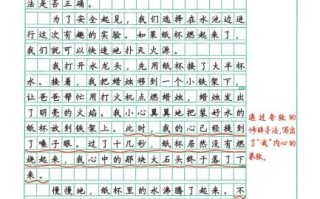 法是否正确。
为了安全起见，我们选择在水池边进
行这次有趣的实验。如果纸杯燃起来了，
我们就可以快速地扑灭火源。
我打开水龙头，先用纸杯接了大半杯
水。接着，我把蜡烛移到一个小铁架下，
让爸爸帮忙用打火机点燃蜡烛，蜡烛发出
了明亮的火焰。我小心翼翼地把装好水的
纸杯放到铁架上。此时，我的心已经提到
了嗓子眼。过了十几秒，纸杯居然没有燃
烧起来，我心中的那块大石头终于落了下
来。
慢慢地，纸杯里的水沸腾了起来。不
通过夸张的
修辞手法，写出
了“我”内心的
紧张。